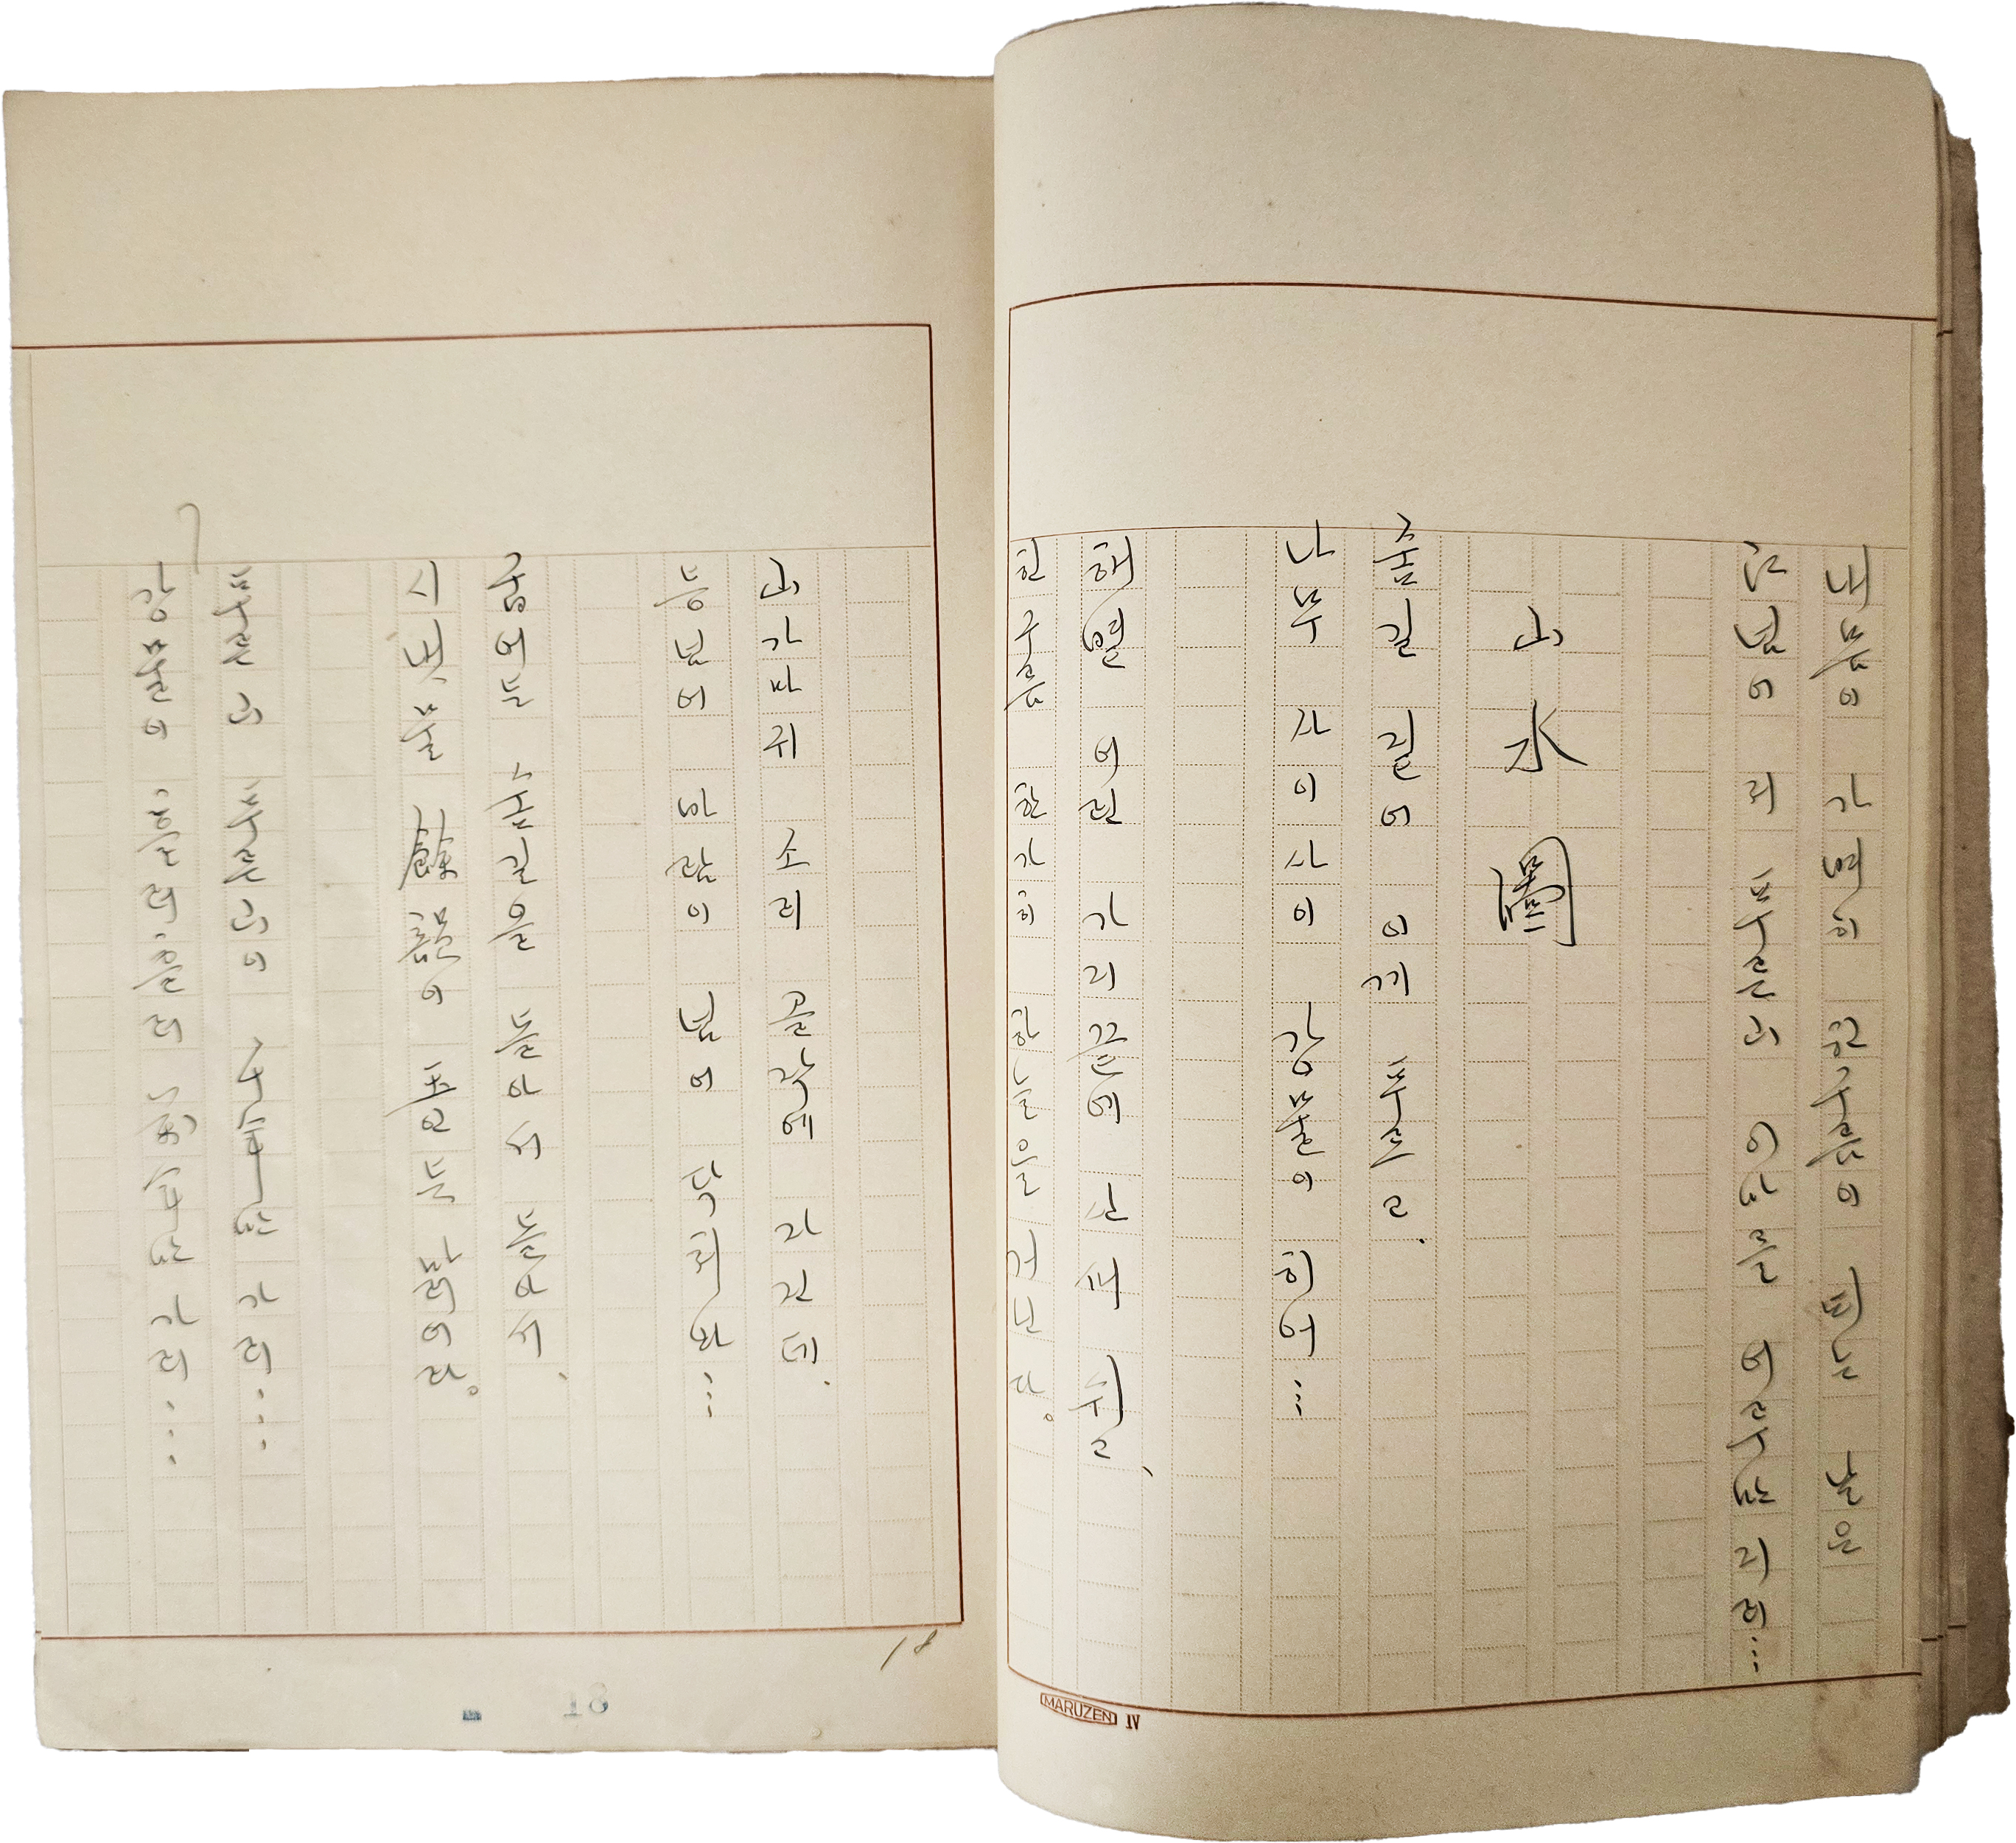 내 몸이 가벼히 흰구름이 되는 날은
江넘어 저 푸른山 이마를 어루만지리…
山水圖
숲길 짙어 이끼 푸르고.
나무 사이사이 강물이 히어…
햇볕 어린 가지 끝에 산새 쉬고,
흰구름 한가히 하늘을 거닌다。
MARUZEN IV
山가마귀 소리 골작에 자진데.
등넘어 바람이 넘어 닥쳐와…
굽어든 숲길을 돌아서 돌아서.
시내물 餘韻이 옥인듯 맑어라。
푸른山 푸른山이 千年만 가리…
강물이 흘러 흘러 萬年만 가리…
18
18